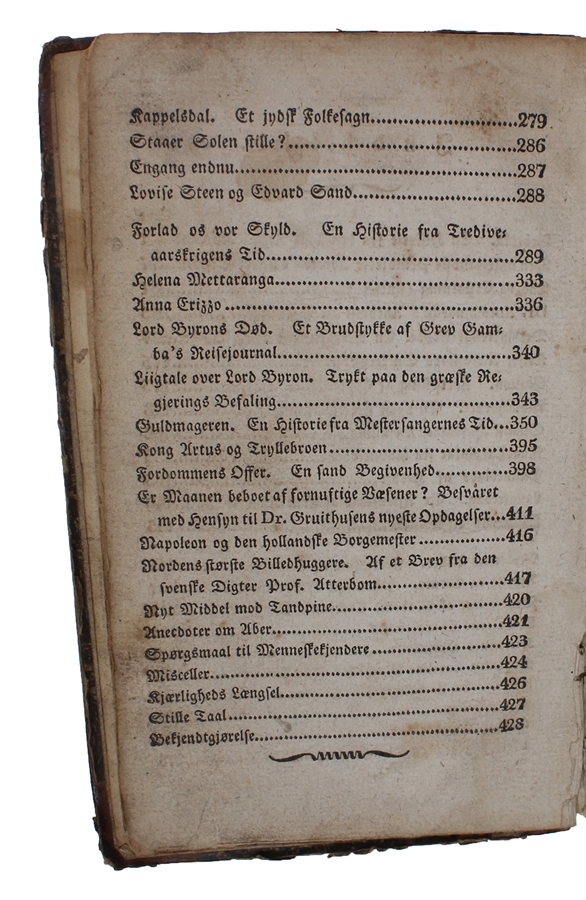 Kappelsdal. Et jydsk Folkesagn..........................279
Staaer Solen stille?..........................286
Engang endnu..........................287
Lovise Steen og Edvard Sand..........................288
Forlad os vor Skyld. En Historie fra Tredive-
aarskrigens Tid..........................289
Helena Mettaranga..........................333
Anna Erizzo..........................336
Lord Byrons Død. Et Brudstykke af Grev Gam-
ba's Reisejournal..........................340
Liigtale over Lord Byron. Trykt paa den græske Re-
gjerings Befaling..........................343
Guldmageren. En Historie fra Mestersangernes Tid...350
Kong Artus og Tryllebroen..........................395
Fordommens Offer. En sand Begivenhed..............398
Er Maanen beboet af fornuftige Væsener? Besvaret
med Hensyn til Dr. Gruithusens nyeste Opdagelser...411
Napoleon og den hollandske Borgemester..............416
Nordens største Billedhuggere. Af et Brev fra den
svenske Digter Prof. Atterbom..........................417
Nyt Middel mod Tandpine..........................420
Anecdoter om Aber..........................421
Spørgsmaal til Menneskekjendere..........................423
Misceller..........................424
Kjærligheds Længsel..........................426
Stille Taal..........................427
Bekjendtgjørelse..........................428